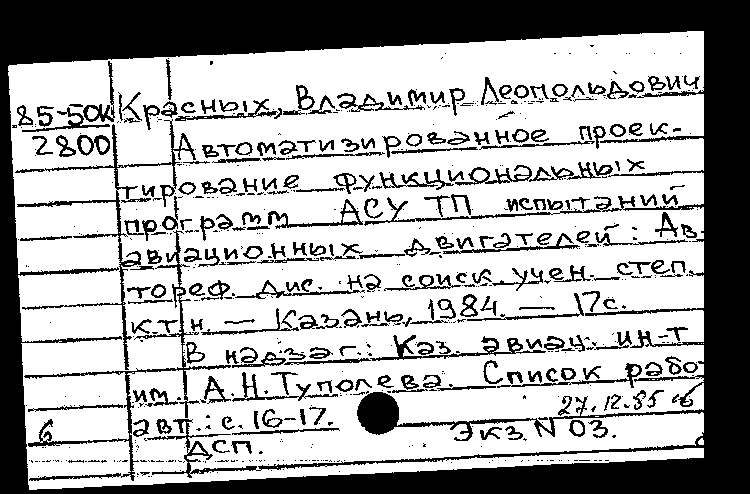 85-50К Красных, Владимир Леопольдович
2800 Автоматизированное проек-
тирование функциональных
программ АСУ ТП испытаний
авиационных двигателей: Ав-
тореф. дис. на соиск. учен. степ.
к.т.н. — Казань, 1984. — 17с.
В надзаг.: Каз. авиац. ин-т
им. А.Н.Туполева. Список рабо
авт.: с. 16-17. 27.12.85
6 ДСП. Экз. N 03.